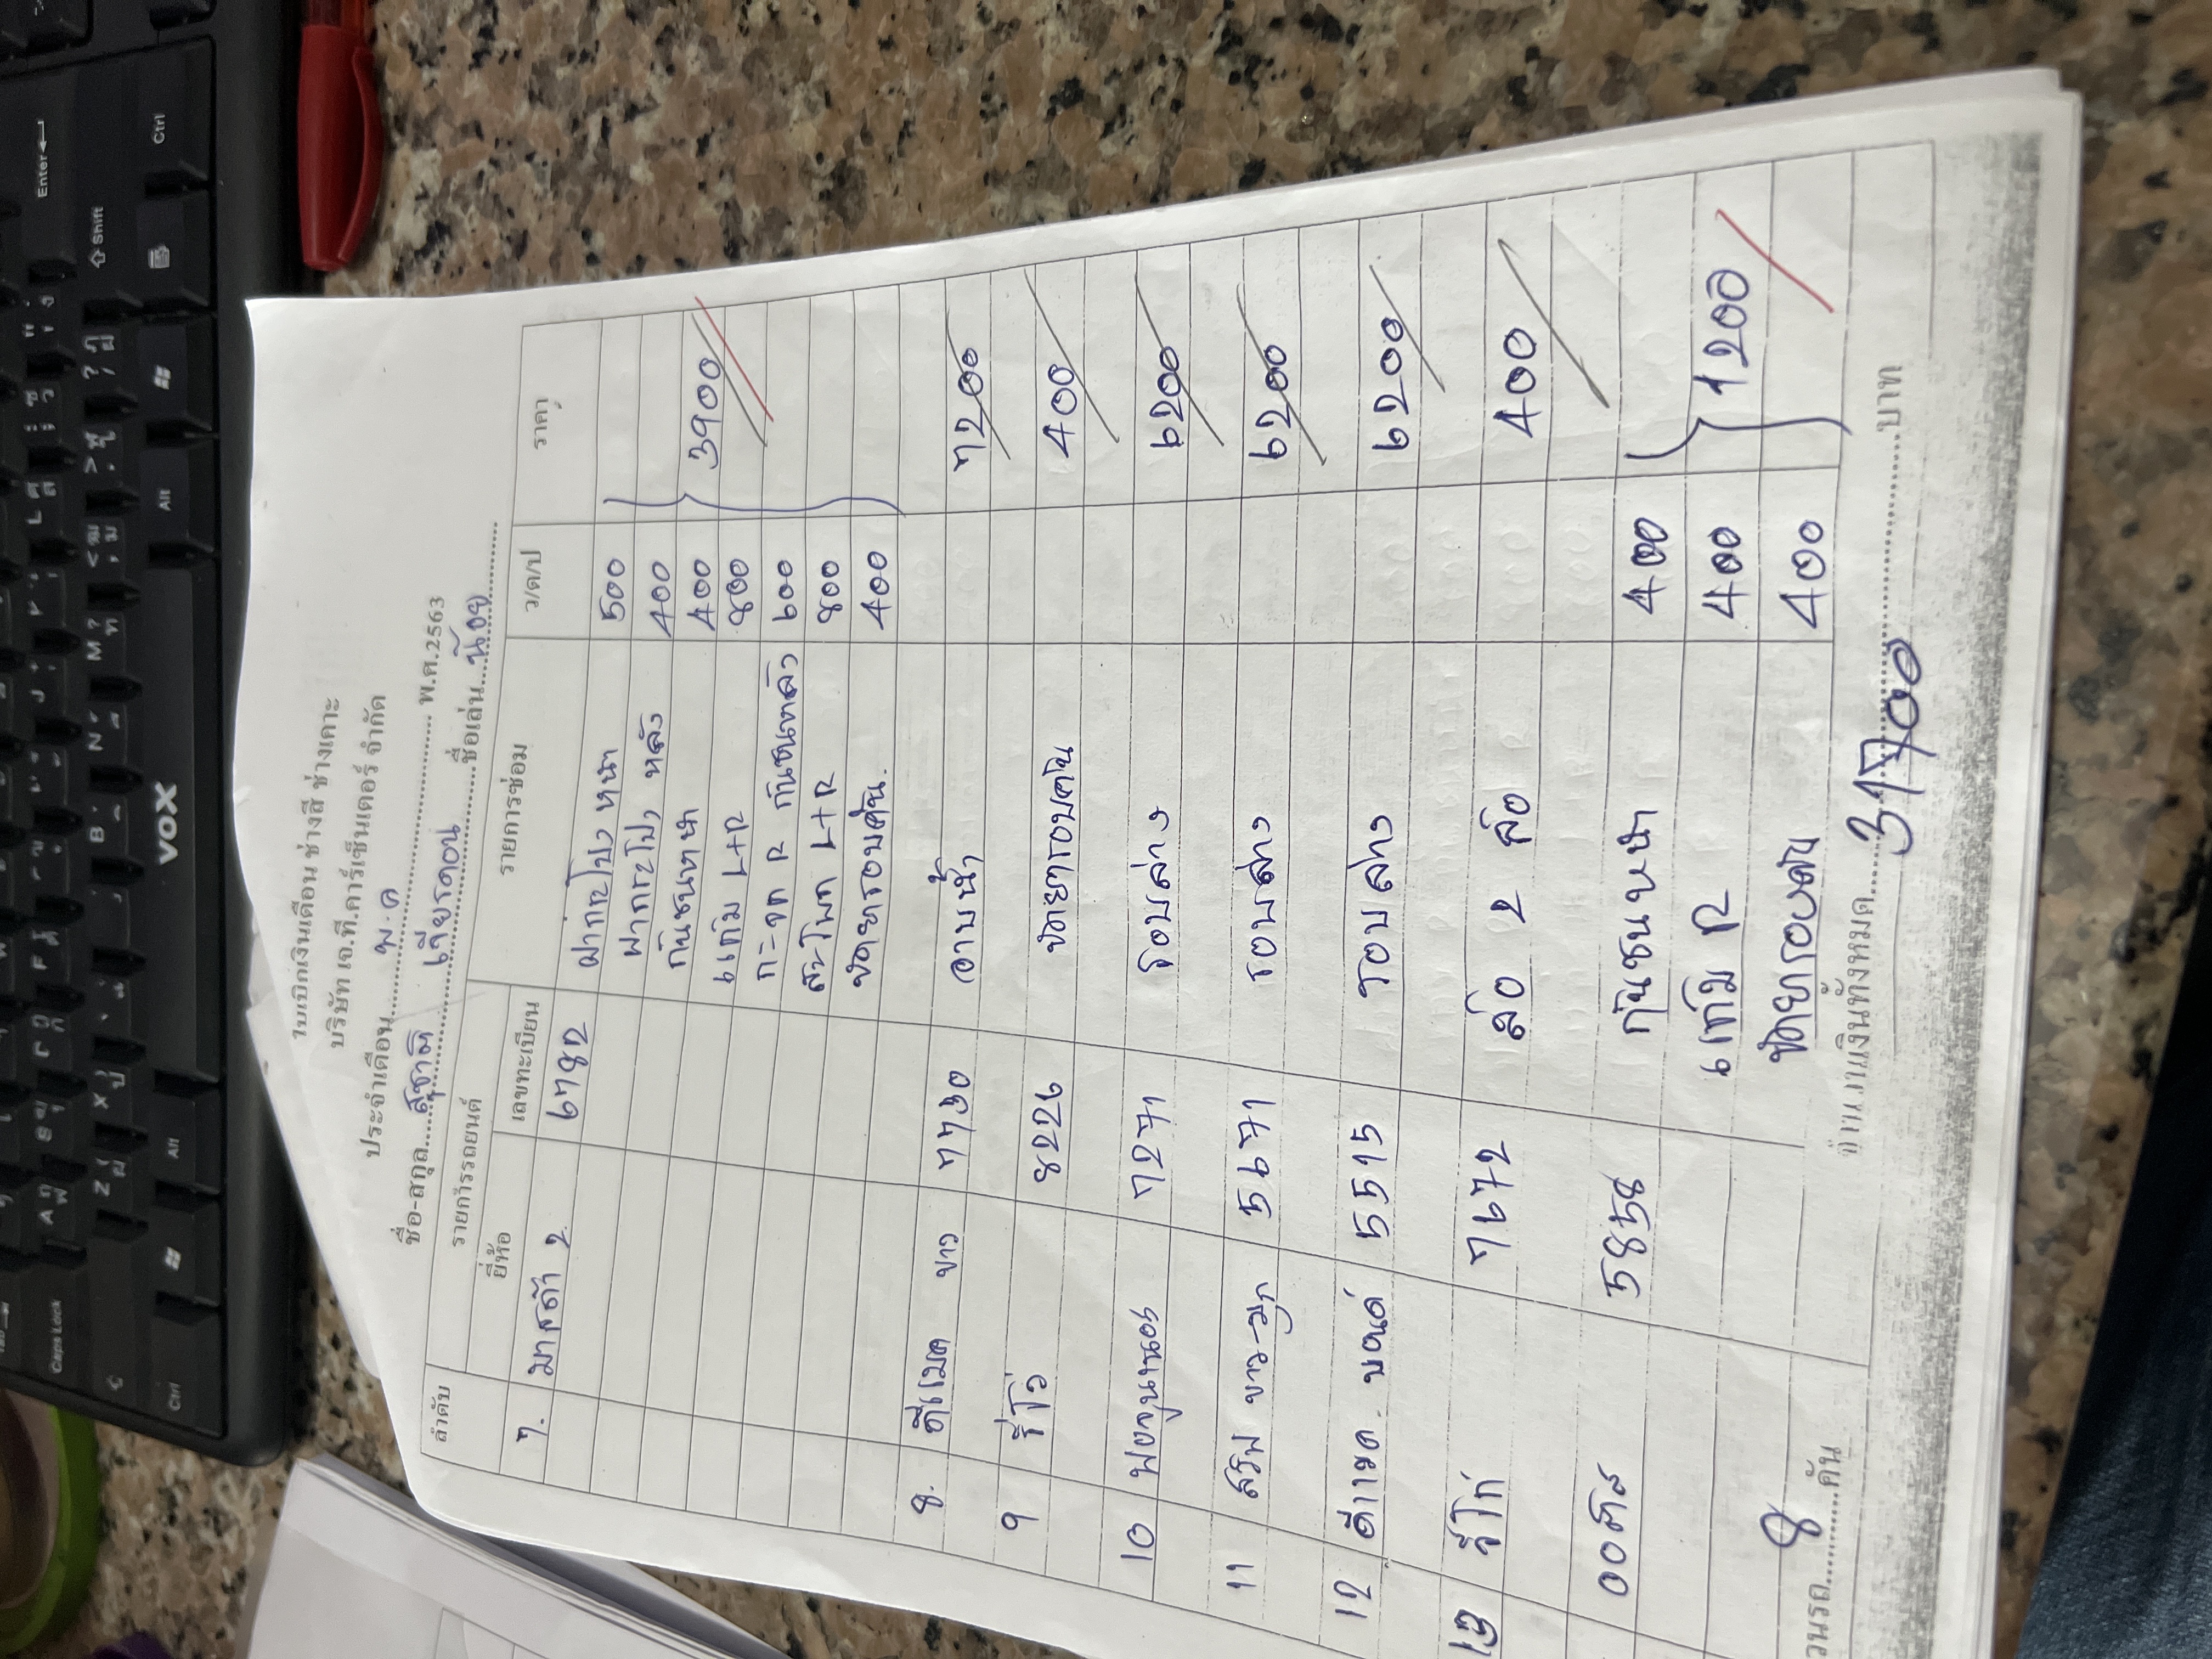 ใบเบิกเงินเดือน ช่างสี ช่างเคาะ
บริษัท เอ.ที.คาร์เซ็นเตอร์ จำกัด
ประจำเดือน......พ.ค......พ.ศ.2563
ชื่อ-สกุล...สุชาติ เจียรดอน...ชื่อเล่น...น้อย...
ลำดับ รายการรถยนต์ รายการซ่อม ว/ด/ป ราคา
ยี่ห้อ เลขทะเบียน
7. มาสด้า 2 6782 ฝากระโปง หน้า 500
ฝากระโปง หลัง 400
กันชนหน้า 400 3900
แก้ม L+R 800
กะจก R กันชนหลัง 600
สะโพก L+R 800
ขัดยารอบคัน. 400
8. ดีแมค ขาว 7730 อาบน้ำ 7200
9 รีโว่ 8226 ขัดยารอบคัน 400
10 ฟอจูนเนอร์ 7271 รอบล่าง 6200
11 สวีฟ ขาว-มุก 5671 รอบล่าง 6200
12 ดีแมค. บอนด์ 5515 รอบล่าง 6200
13 วีโก่ 7672 ล้อ 2 ล้อ 400
ออติส 5858 กันชนหน้า 400
แก้ม R 400 1200
ขัดยารอบคัน 400
วนรถ...8...คัน จำนวนเงินทั้งหมด...31700...บาท
VOX
Enter
Shift
Ctrl
Alt
Caps Lock